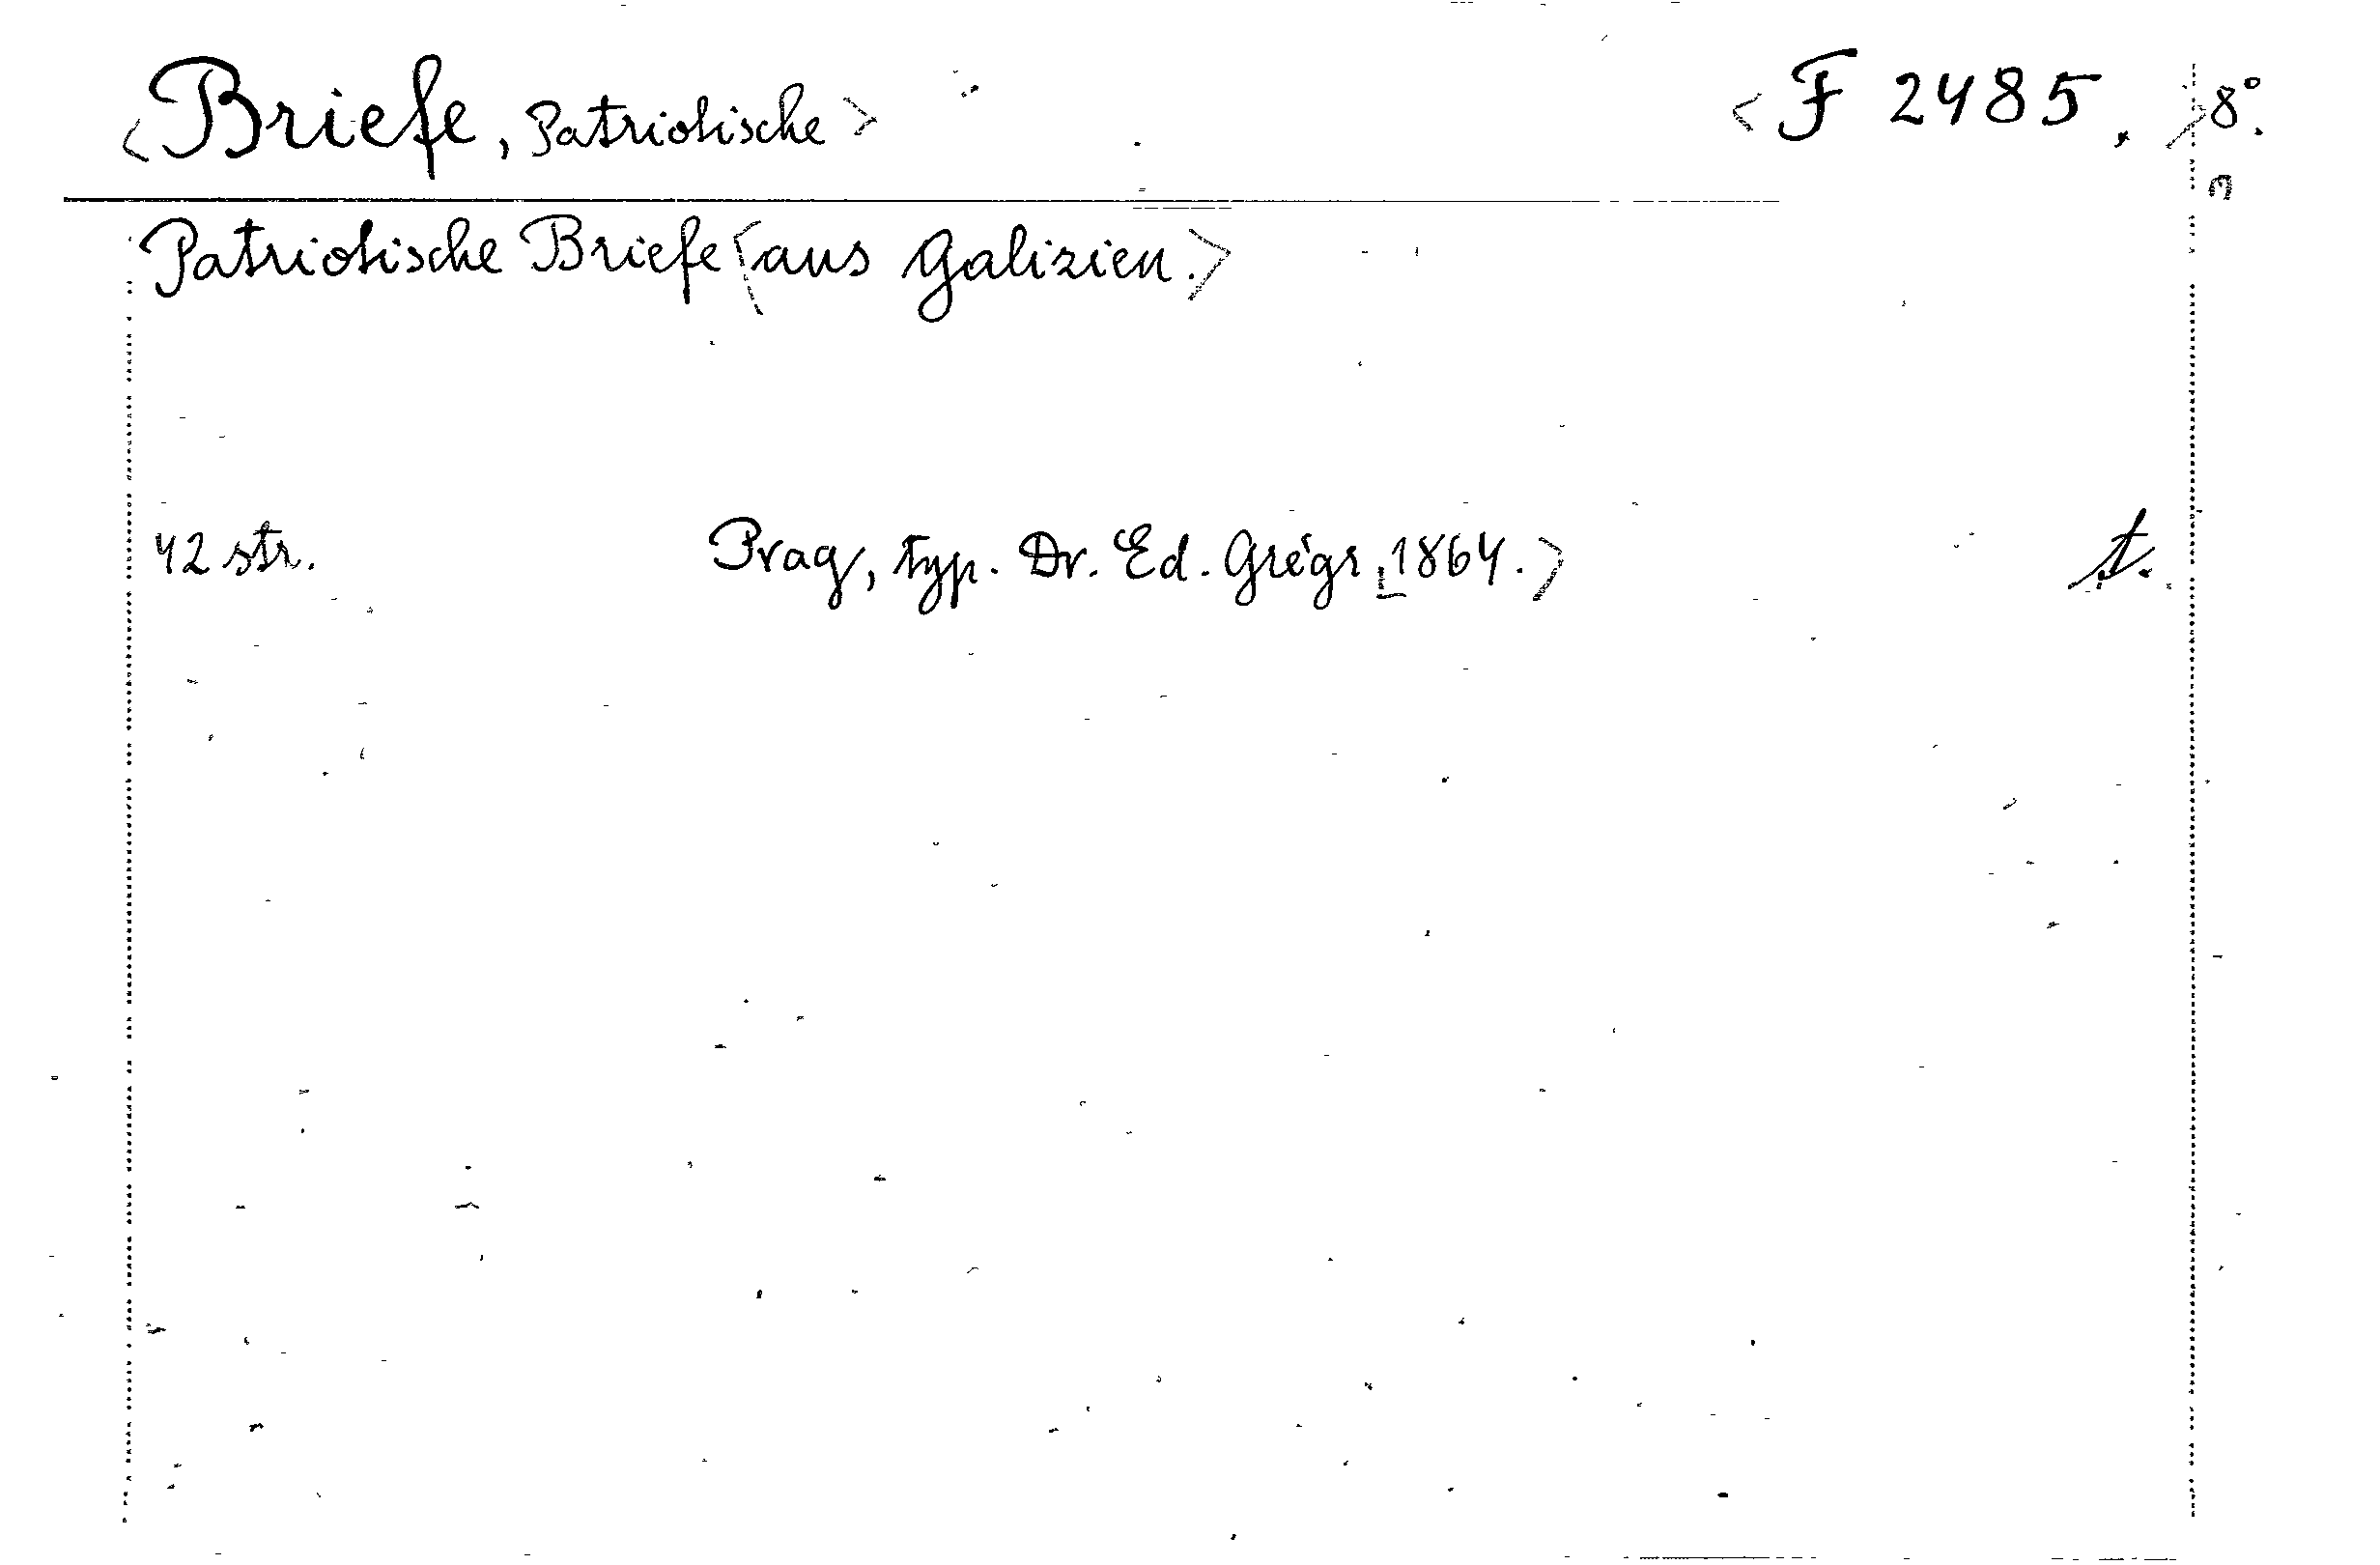 <Briefe, Patriotische> <F 2485.> 8°.
Patriotische Briefe <aus Galizien.>
42 str. Prag, typ. Dr. Ed. Grégr, 1864.> t.